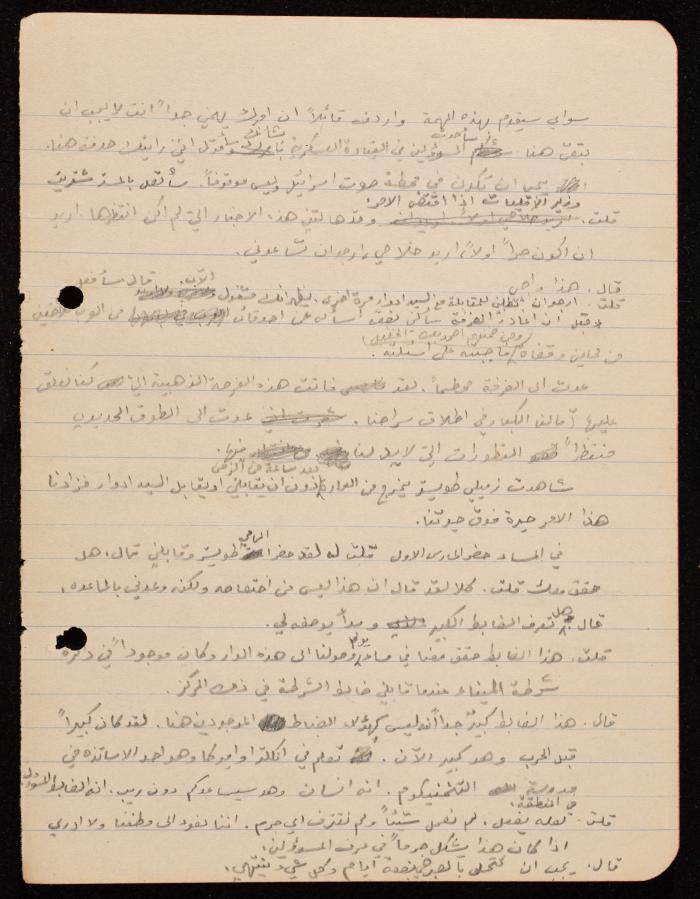 سواي سيقوم بهذه المهمة واردف قائلاً ان امرك يهمني جداً انت لا يجب ان
تبقى هنا. سأحدث المسؤولين في القيادة العسكرية بشأنك وأقول انني رأيتك صدفة هنا.
يجب ان تكون في محطة صوت اسرائيل وليس موقوفاً. سأتصل بالمستر شتريت
وزير الاقليات اذا اقتضى الامر.
قلت. وقد هالتني هذه الاخبار التي لم اكن انتظرها. اريد
ان اكون حراً اولاً، اريد خلاصي، ارجو ان تساعدوني.
قال. هذا واجبي الآن. قال سأفعل
قلت. ارجو ان تطلبني للمقابلة مع السيد ادوار مرة اخرى. يظهر انك مشغول
وقبل ان اغادر الغرفة سألني بضعة اسئلة عن اصدقائه من العرب اللاجئين
من محامين وقضاة فأجبته على اسئلته.
عدت الى الغرفة محطماً. لقد فاتت هذه الفرصة الذهبية التي كنا نعلق
عليها آمالنا الكبار في اطلاق سراحنا. عدت الى الطوق الحديدي
منتظراً التطورات التي لا بد لنا منها.
بعد ساعة من الزمن
شاهدت زميلي طويستر يخرج من العمارة دون ان يقابلني او يقابل السيد ادوار فزادنا
هذا الامر حيرة فوق حيرتنا.
في المساء حضر الحارس الاول قلت له لقد حضر المحامي طويستر وقابلني قال، هل
حقق معك قلت. كلا لقد قال ان هذا ليس من اختصاصه ولكنه وعدني بالمساعدة.
قال هل تعرف الضابط الكبير وبدأ يوصفه لي.
قلت. هذا الضابط حقق معنا في مساء يوم وصولنا الى هذه الدار وكان موجوداً في دائرة
شرطة الميناء عندما قابلني ضابط الشرطة في ذلك المركز.
قال. هذا الضابط كبير جداً انه ليس كهؤلاء الضباط الموجودين هنا. لقد كان كبيراً
قبل الحرب وهو كبير الآن. تعلم في انكلترا واميركا وهو احد الاساتذة في
مدرسة التخنيكوم. انه انسان وهو سيساعدكم دون ريب. انه الضابط المسؤول
في المنطقة.
قلت. لعله يفعل. لم نعمل شيئاً ولم نقترف اي جرم. اننا نعود الى وطننا ولا ادري
اذا كان هذا يشكل جرماً في عرف المسؤولين.
قال. يجب ان تتحلى بالصبر بضعة ايام وكل شيء ينتهي.